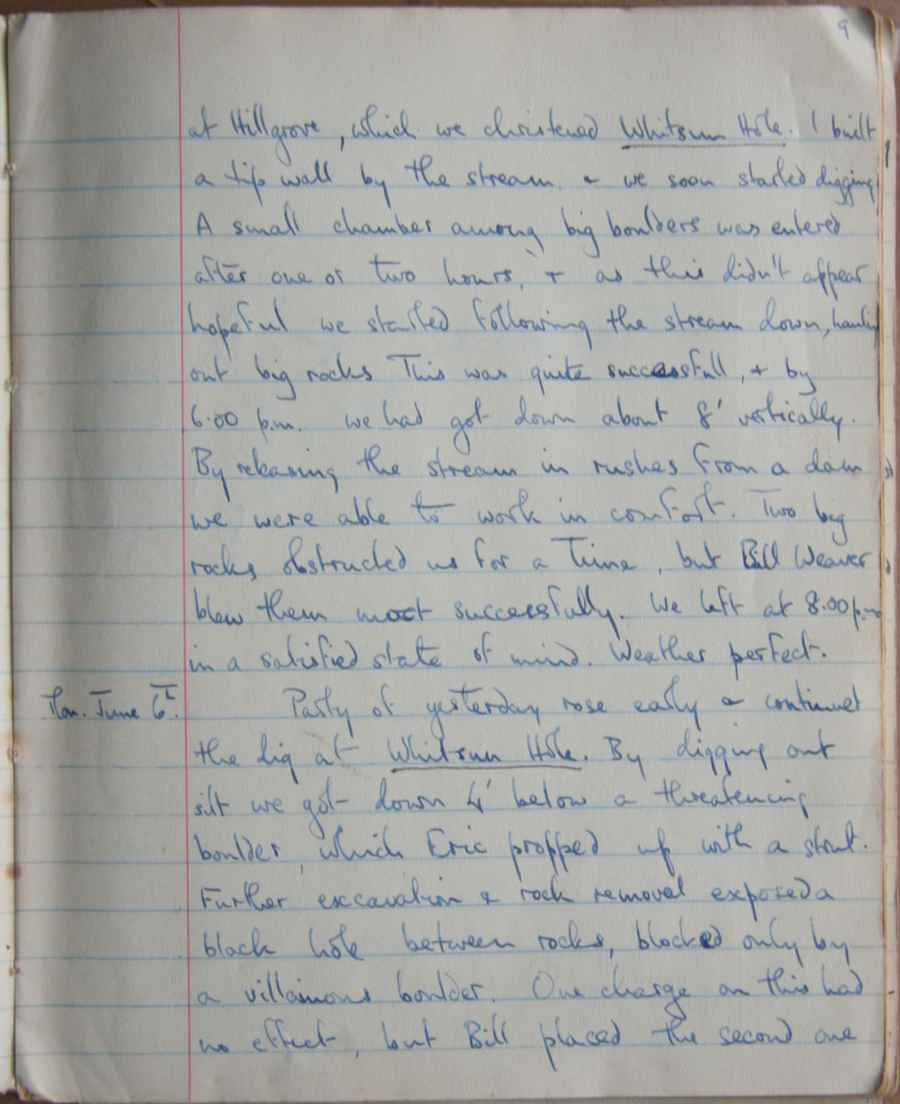 9
at Hillgrove, which we christened Whitsun Hole. I built
a tip wall by the stream & we soon started digging
A small chamber among big boulders was entered
after one or two hours, & as this didn't appear
hopeful we started following the stream down, hauling
out big rocks This was quite successfull, & by
6.00 p.m. we had got down about 8' vertically.
By releasing the stream in rushes from a dam
we were able to work in comfort. Two big
rocks obstructed us for a time, but Bill Weaver
blew them most successfully. We left at 8.00 p.m
in a satisfied state of mind. Weather perfect.
Mon. June 6th. Party of yesterday rose early & continued
the dig at Whitsun Hole. By digging out
silt we got down 4' below a threatening
boulder, which Eric propped up with a strut.
Further excavation & rock removal exposed a
black hole between rocks, blocked only by
a villainous boulder. One charge on this had
no effect, but Bill placed the second one